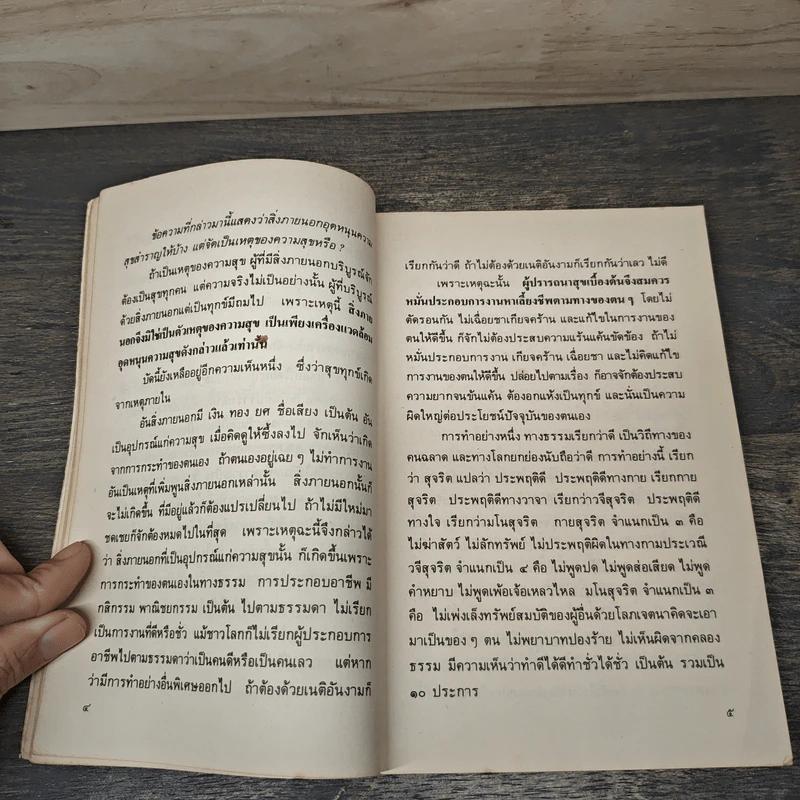 ข้อความที่กล่าวมานี้แสดงว่าสิ่งภายนอกอุดหนุนความ
สุขสำราญให้บ้าง แต่จัดเป็นเหตุของความสุขหรือ ?
ถ้าเป็นเหตุของความสุข ผู้ที่มีสิ่งภายนอกบริบูรณ์จัก
ต้องเป็นสุขทุกคน แต่ความจริงไม่เป็นอย่างนั้น ผู้ที่บริบูรณ์
ด้วยสิ่งภายนอกแต่เป็นทุกข์มีถมไป เพราะเหตุนี้ สิ่งภาย
นอกจึงมิใช่เป็นตัวเหตุของความสุข เป็นเพียงเครื่องแวดล้อม
อุดหนุนความสุขดังกล่าวแล้วเท่านั้น
บัดนี้ยังเหลืออยู่อีกความเห็นหนึ่ง ซึ่งว่าสุขทุกข์เกิด
จากเหตุภายใน
อันสิ่งภายนอกมี เงิน ทอง ยศ ชื่อเสียง เป็นต้น อัน
เป็นอุปกรณ์แก่ความสุข เมื่อคิดดูให้ซึ้งลงไป จักเห็นว่าเกิด
จากการกระทำของตนเอง ถ้าตนเองอยู่เฉย ๆ ไม่ทำการงาน
อันเป็นเหตุที่เพิ่มพูนสิ่งภายนอกเหล่านั้น สิ่งภายนอกนั้นก็
จะไม่เกิดขึ้น ที่มีอยู่แล้วก็ต้องแปรเปลี่ยนไป ถ้าไม่มีใหม่มา
ชดเชยก็จักต้องหมดไปในที่สุด เพราะเหตุฉะนี้จึงกล่าวได้
ว่า สิ่งภายนอกที่เป็นอุปกรณ์แก่ความสุขนั้น ก็เกิดขึ้นเพราะ
การกระทำของตนเองในทางธรรม การประกอบอาชีพ มี
กสิกรรม พาณิชยกรรม เป็นต้น ไปตามธรรมดา ไม่เรียก
เป็นการงานที่ดีหรือชั่ว แม้ชาวโลกก็ไม่เรียกผู้ประกอบการ
อาชีพไปตามธรรมดาว่าเป็นคนดีหรือเป็นคนเลว แต่หาก
ว่ามีการทำอย่างอื่นพิเศษออกไป ถ้าต้องด้วยเนติอันงามก็
๔
เรียกกันว่าดี ถ้าไม่ต้องด้วยเนติอันงามก็เรียกกันว่าเลว ไม่ดี
เพราะเหตุฉะนั้น ผู้ปรารถนาสุขเบื้องต้นจึงสมควร
หมั่นประกอบการงานหาเลี้ยงชีพตามทางของตน ๆ โดยไม่
ตัดรอนกัน ไม่เฉื่อยชาเกียจคร้าน และแก้ไขในการงานของ
ตนให้ดีขึ้น ก็จักไม่ต้องประสบความแร้นแค้นขัดข้อง ถ้าไม่
หมั่นประกอบการงาน เกียจคร้าน เฉื่อยชา และไม่คิดแก้ไข
การงานของตนให้ดีขึ้น ปล่อยไปตามเรื่อง ก็อาจจักต้องประสบ
ความยากจนข้นแค้น ต้องอกแห้งเป็นทุกข์ และนั่นเป็นความ
ผิดใหญ่ต่อประโยชน์ปัจจุบันของตนเอง
การทำอย่างหนึ่ง ทางธรรมเรียกว่าดี เป็นวิถีทางของ
คนฉลาด และทางโลกยกย่องนับถือว่าดี การทำอย่างนี้ เรียก
ว่า สุจริต แปลว่า ประพฤติดี ประพฤติดีทางกาย เรียกกาย
สุจริต ประพฤติดีทางวาจา เรียกว่าวจีสุจริต ประพฤติดี
ทางใจ เรียกว่ามโนสุจริต กายสุจริต จำแนกเป็น ๓ คือ
ไม่ฆ่าสัตว์ ไม่ลักทรัพย์ ไม่ประพฤติผิดในทางกามประเวณี
วจีสุจริต จำแนกเป็น ๔ คือ ไม่พูดปด ไม่พูดส่อเสียด ไม่พูด
คำหยาบ ไม่พูดเพ้อเจ้อเหลวไหล มโนสุจริต จำแนกเป็น ๓
คือ ไม่เพ่งเล็งทรัพย์สมบัติของผู้อื่นด้วยโลภเจตนาคิดจะเอา
มาเป็นของ ๆ ตน ไม่พยาบาทปองร้าย ไม่เห็นผิดจากคลอง
ธรรม มีความเห็นว่าทำดีได้ดีทำชั่วได้ชั่ว เป็นต้น รวมเป็น
๑๐ ประการ
๕